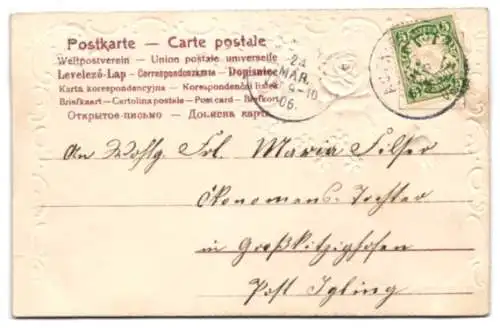 Postkarte — Carte postale
Weltpostverein — Union postale universelle
Levelező-Lap — Correspondenzkarte — Dopisnice
Karta korespondencyjna — Korespondenční lístek
Briefkaart — Cartolina postale — Post card — Brefkort
Открытое письмо — Дописна карта
24
MAR.
9-10
06.
5
5
An Wohlg. Frl. Maria Filser
Ökonomens-Tochter
in Großkitzighofen
Post Igling